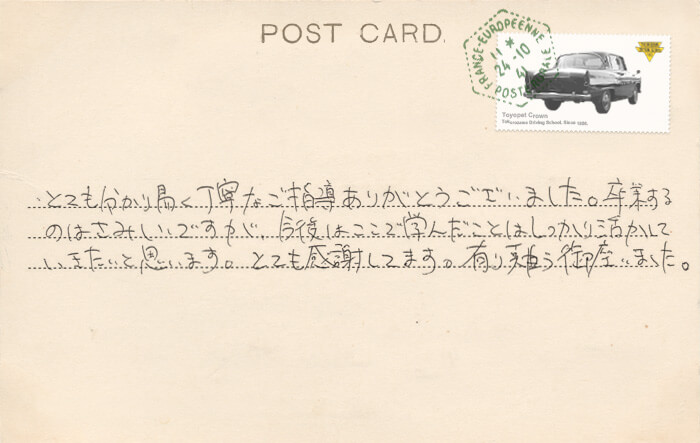 POST CARD.
FRANCE-EUROPEENNE
11 *
24-10
41
POSTE
Toyopet Crown
Driving School, Since
とても分かり易く丁寧なご指導ありがとうございました。卒業する
のはさみしいですが、今後はここで学んだことはしっかり活かして
いきたいと思います。とても感謝してます。有り難う御座いました。